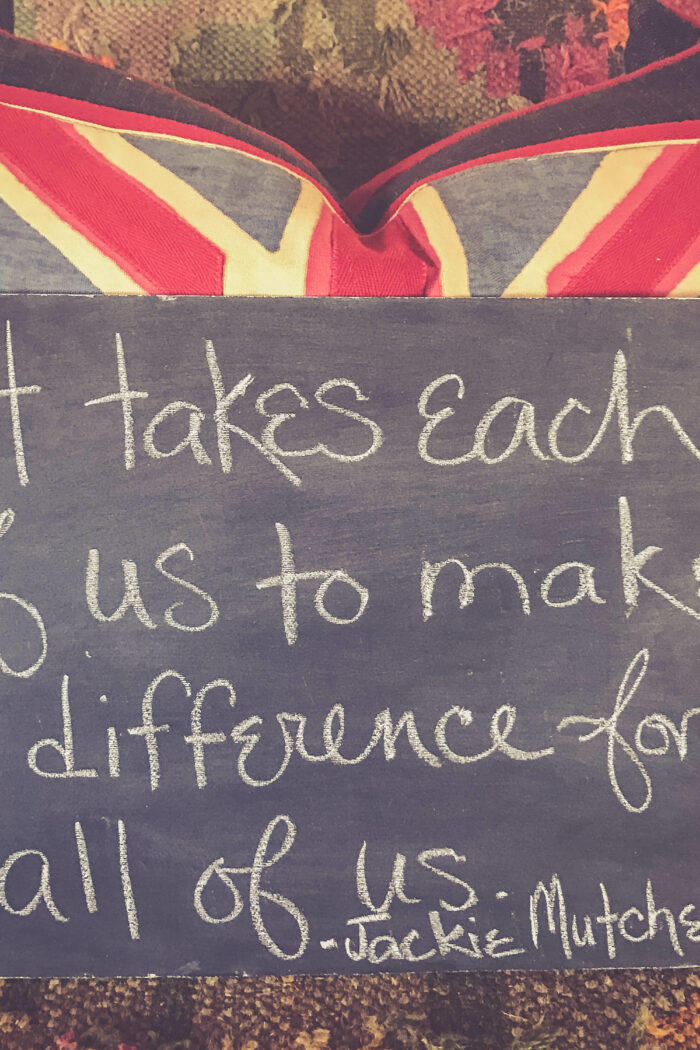 t takes each
f us to mak
difference for
all of us.
-Jackie Mutche